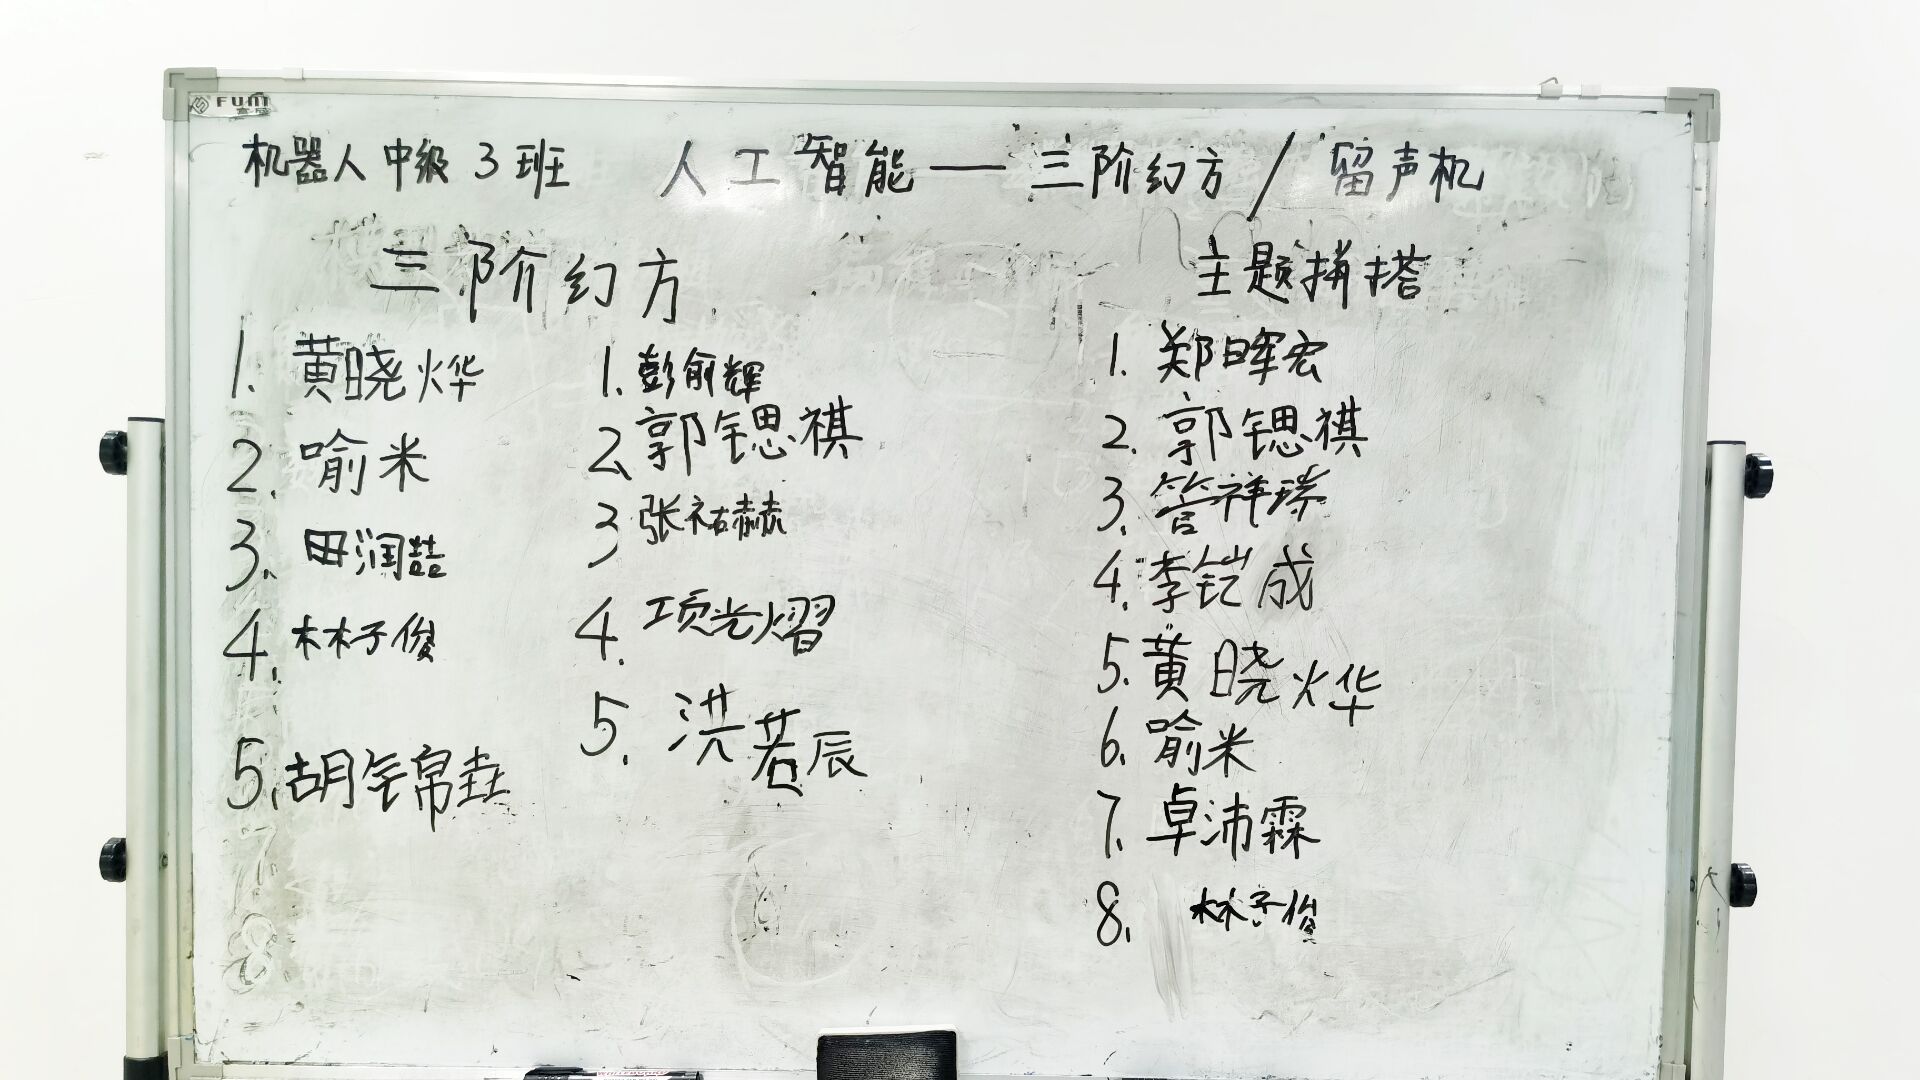 FUNI
机器人中级3班 人工智能——三阶幻方/留声机
三阶幻方
1. 黄晓烨
2. 喻米
3. 田润喆
4. 林子俊
5. 胡锦垚
7.
8.
1. 彭俞辉
2. 郭锶祺
3 张祐赫
4. 项光熠
5. 洪若辰
主题拼搭
1. 郑晖宏
2. 郭锶祺
3. 管祥瑧
4. 李铠成
5. 黄晓烨
6. 喻米
7. 卓沛霖
8. 林子俊